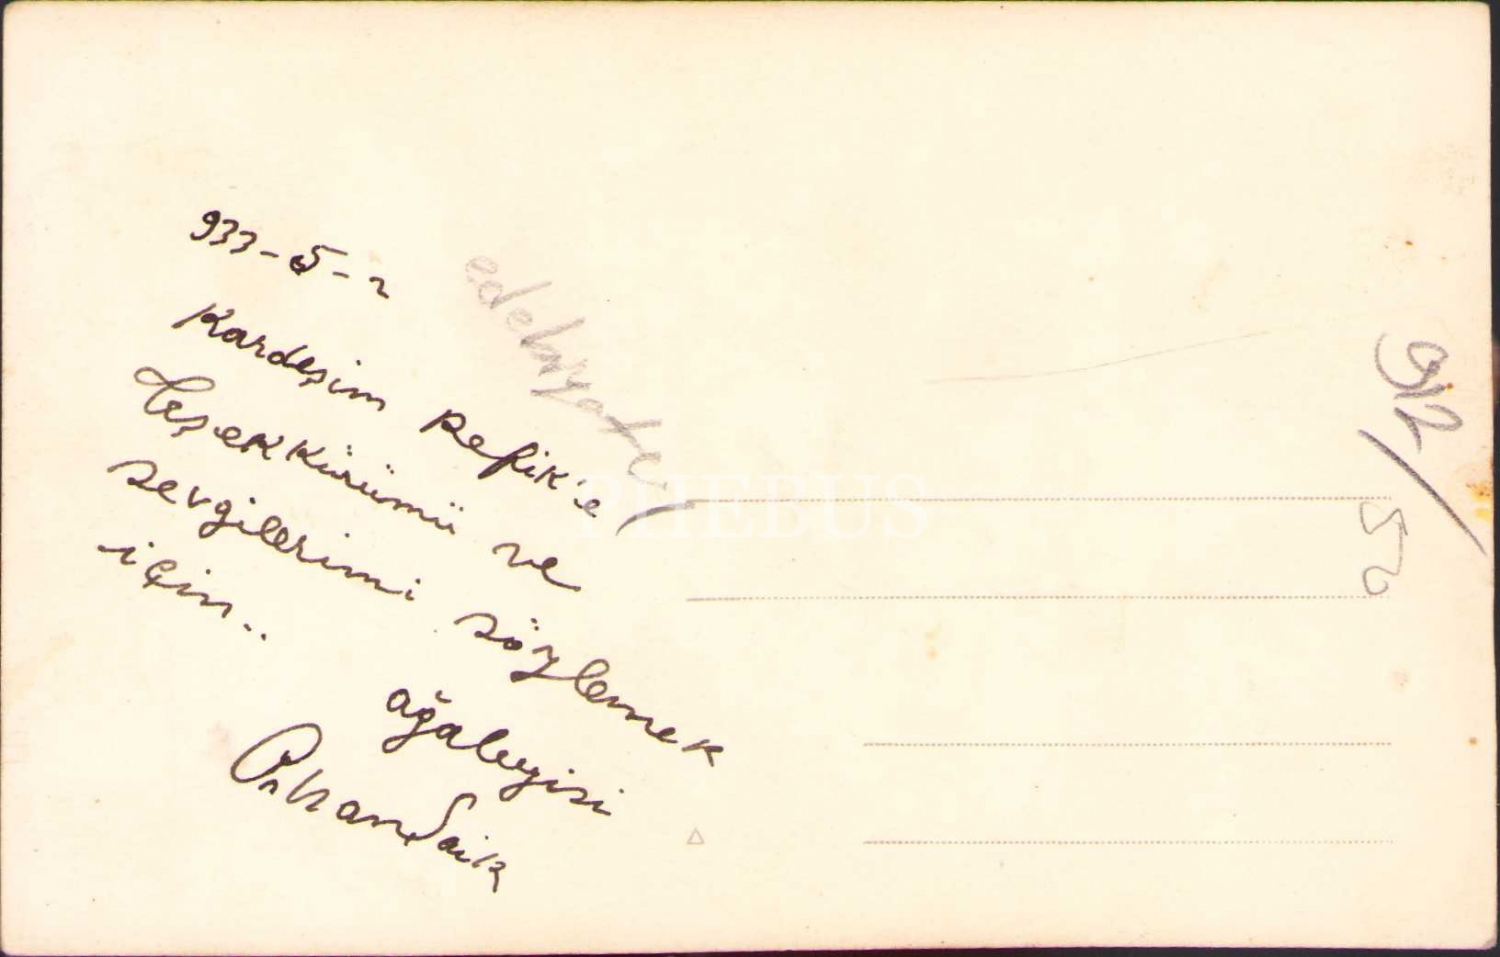 933-5-2
Kardeşim Refik'e
Teşekkürümü ve
sevgilerimi söylemek
için..
ağabeyisi
Orhan Saik
edebiyatçı
PHEBUS
912
50